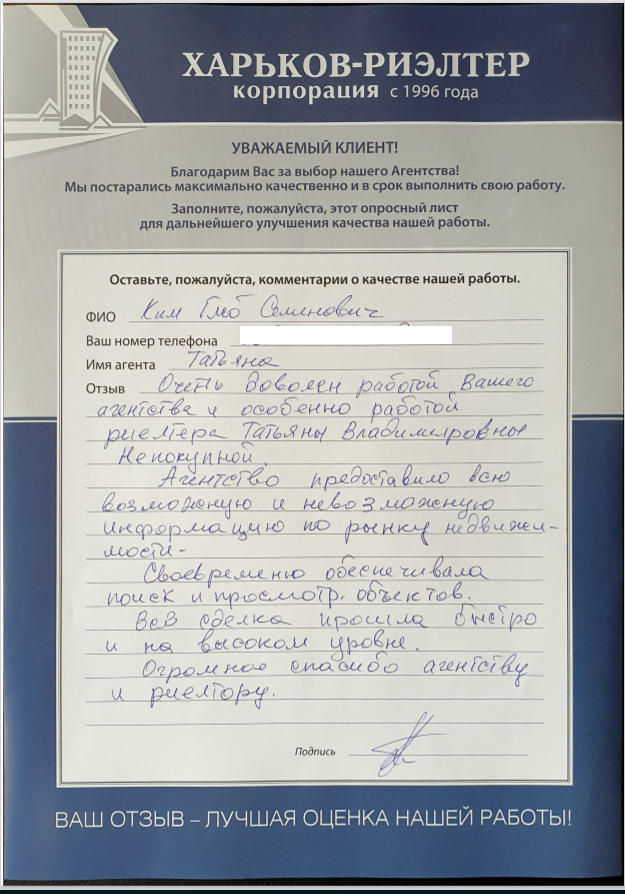 ХАРЬКОВ-РИЭЛТЕР
корпорация с 1996 года
УВАЖАЕМЫЙ КЛИЕНТ!
Благодарим Вас за выбор нашего Агентства!
Мы постарались максимально качественно и в срок выполнить свою работу.
Заполните, пожалуйста, этот опросный лист
для дальнейшего улучшения качества нашей работы.
Оставьте, пожалуйста, комментарии о качестве нашей работы.
ФИО Ким Глеб Семенович
Ваш номер телефона
Имя агента Татьяна
Отзыв Очень доволен работой Вашего
агентства и особенно работой
риелтера Татьяны Владимировны
Непокупной.
Агентство предоставило всю
возможную и невозможную
информацию по рынку недвижи-
мости-
Своевременно обеспечивала
поиск и просмотр. объектов.
Вся сделка прошла быстро
и на высоком уровне.
Огромное спасибо агентству
и риелтору.
Подпись
ВАШ ОТЗЫВ – ЛУЧШАЯ ОЦЕНКА НАШЕЙ РАБОТЫ!